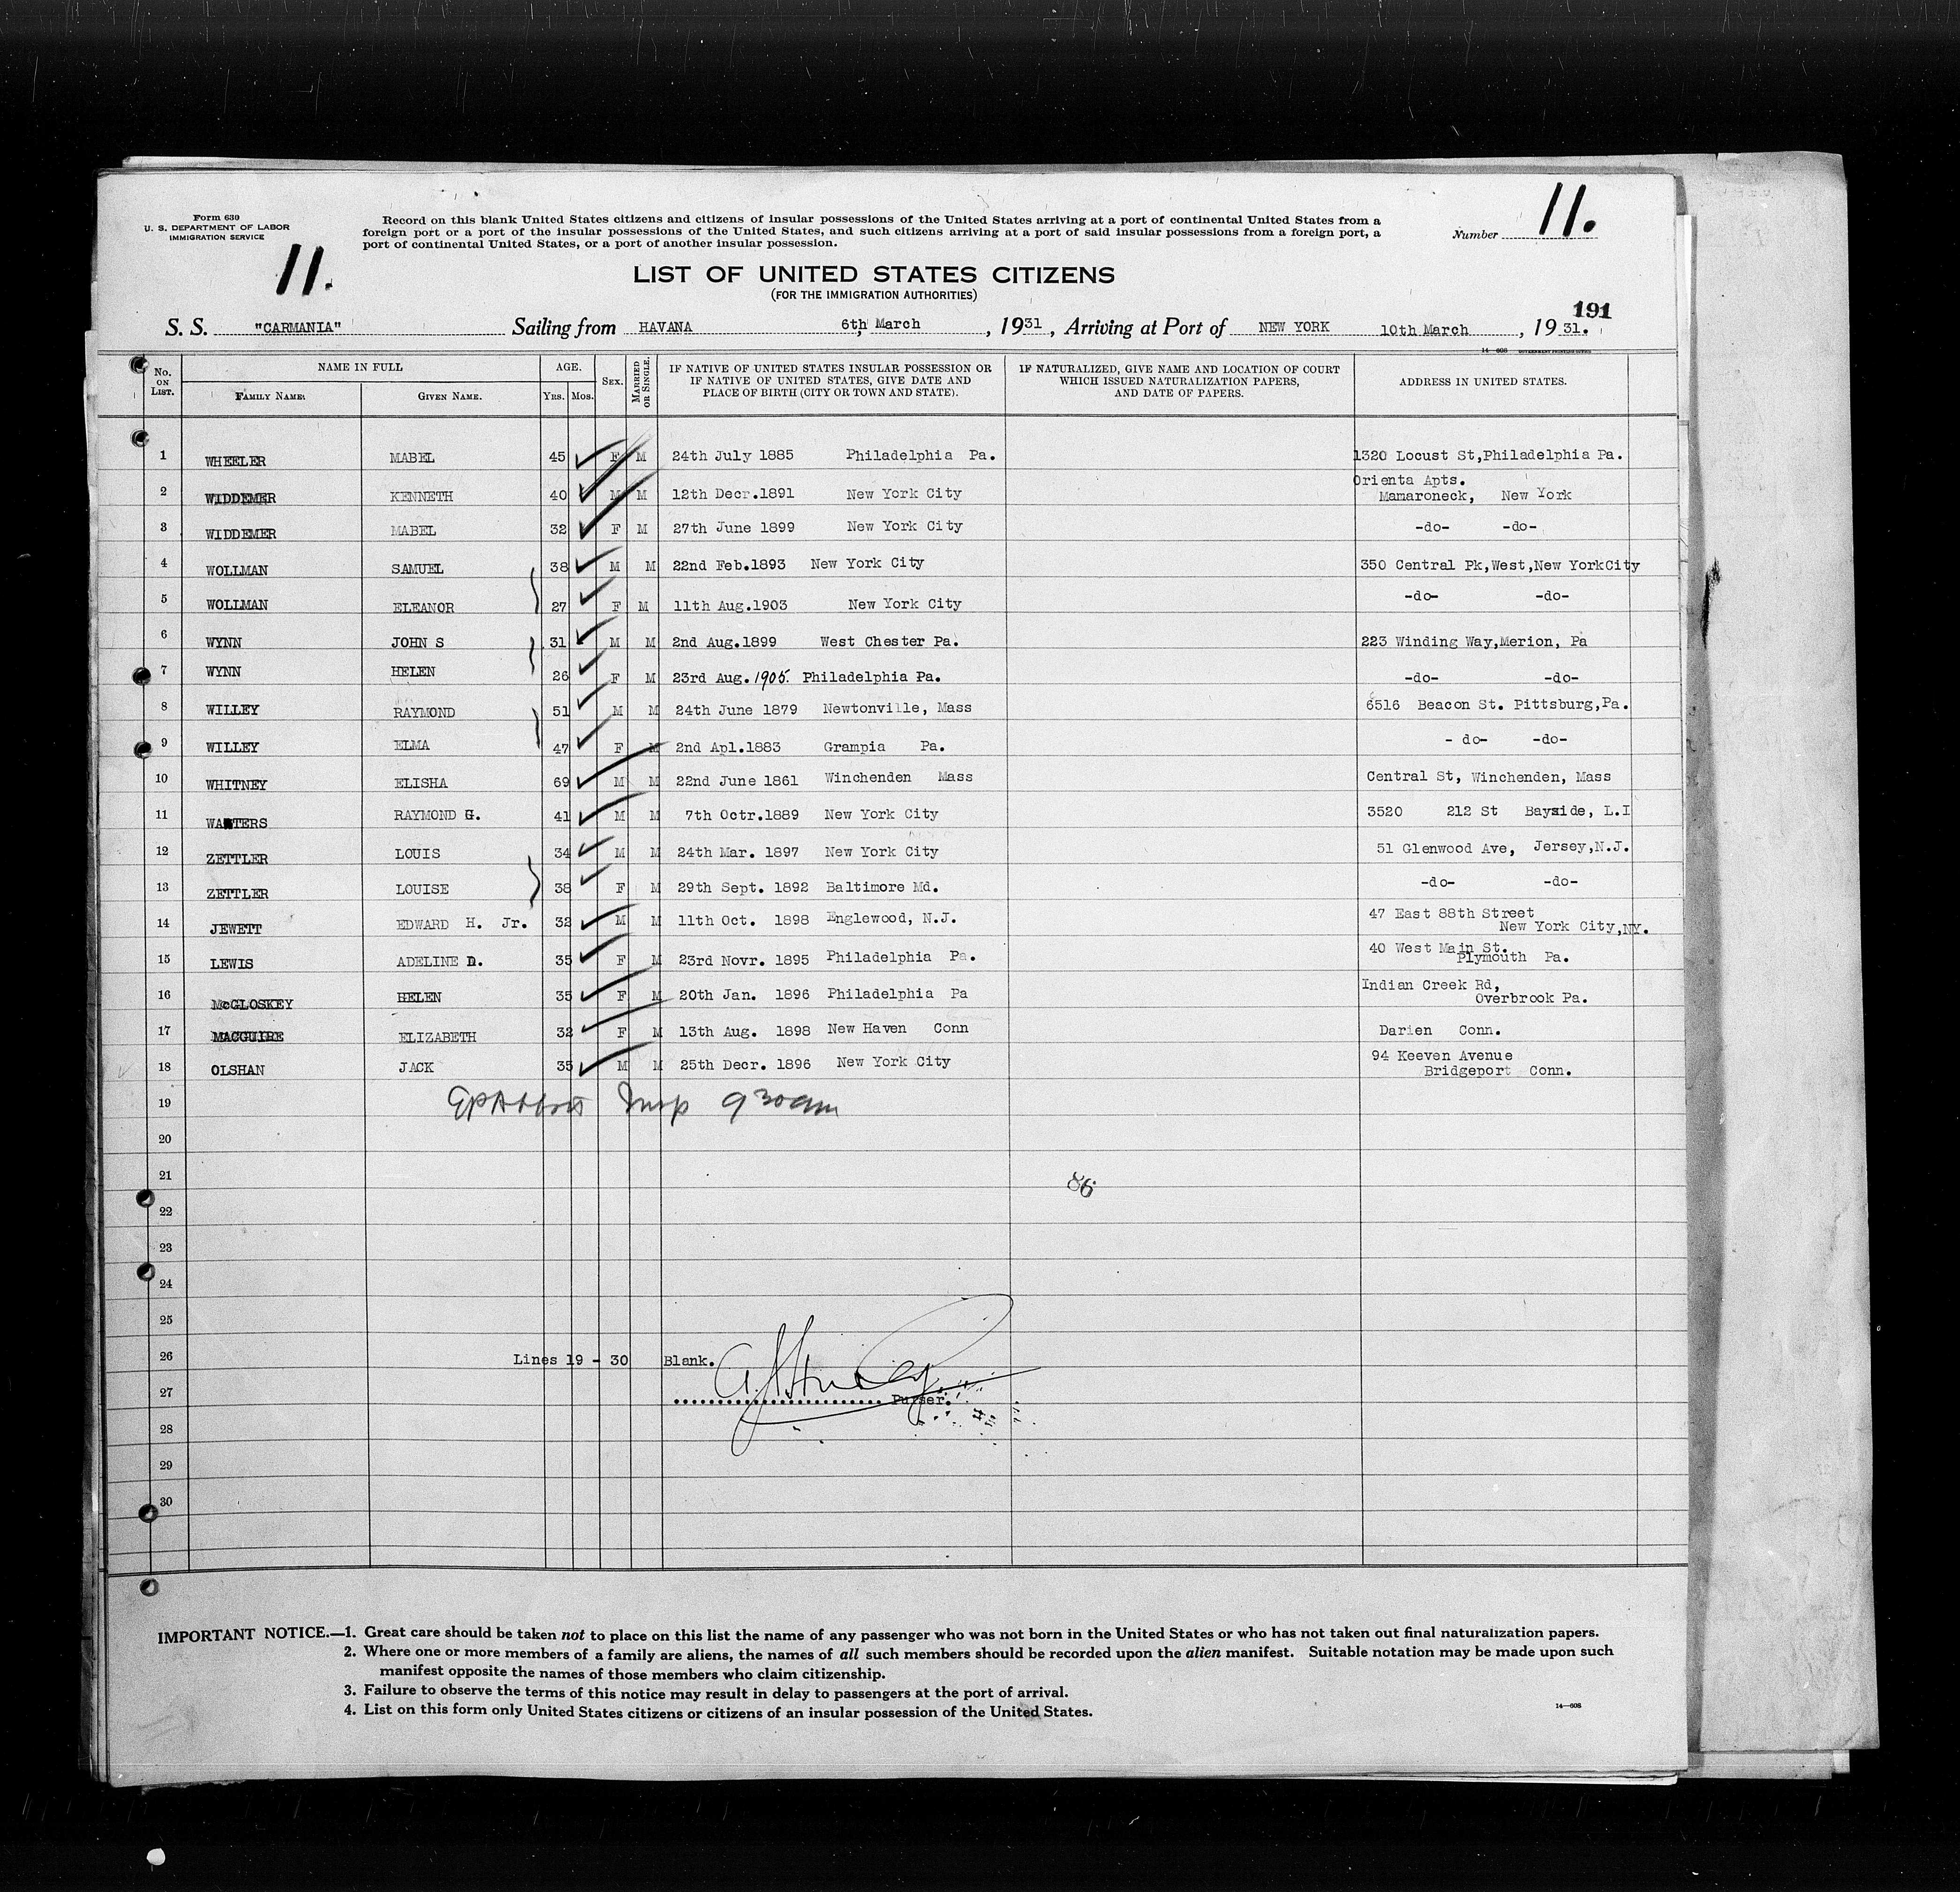 Form 630
U. S. DEPARTMENT OF LABOR
IMMIGRATION SERVICE
11.
Record on this blank United States citizens and citizens of insular possessions of the United States arriving at a port of continental United States from a
foreign port or a port of the insular possessions of the United States, and such citizens arriving at a port of said insular possessions from a foreign port, a
port of continental United States, or a port of another insular possession.
Number 11.
LIST OF UNITED STATES CITIZENS
(FOR THE IMMIGRATION AUTHORITIES)
191
S. S. "CARMANIA" Sailing from HAVANA 6th March, 1931, Arriving at Port of NEW YORK 10th March, 1931.
14-608
No. ON LIST. NAME IN FULL FAMILY NAME. GIVEN NAME. AGE. YRS. MOS. SEX. MARRIED OR SINGLE. IF NATIVE OF UNITED STATES INSULAR POSSESSION OR IF NATIVE OF UNITED STATES, GIVE DATE AND PLACE OF BIRTH (CITY OR TOWN AND STATE). IF NATURALIZED, GIVE NAME AND LOCATION OF COURT WHICH ISSUED NATURALIZATION PAPERS, AND DATE OF PAPERS. ADDRESS IN UNITED STATES.
1 WHEELER MABEL 45 F M 24th July 1885 Philadelphia Pa. 1320 Locust St,Philadelphia Pa.
2 WIDDEMER KENNETH 40 M M 12th Decr.1891 New York City Orienta Apts. Mamaroneck, New York
3 WIDDEMER MABEL 32 F M 27th June 1899 New York City -do- -do-
4 WOLLMAN SAMUEL 38 M M 22nd Feb.1893 New York City 350 Central Pk,West,New YorkCity
5 WOLLMAN ELEANOR 27 F M 11th Aug.1903 New York City -do- -do-
6 WYNN JOHN S 31 M M 2nd Aug.1899 West Chester Pa. 223 Winding Way,Merion, Pa
7 WYNN HELEN 26 F M 23rd Aug.1905. Philadelphia Pa. -do- -do-
8 WILLEY RAYMOND 51 M M 24th June 1879 Newtonville, Mass 6516 Beacon St. Pittsburg,Pa.
9 WILLEY ELMA 47 F M 2nd Apl.1883 Grampia Pa. - do- -do-
10 WHITNEY ELISHA 69 M M 22nd June 1861 Winchenden Mass Central St, Winchenden, Mass
11 WATERS RAYMOND G. 41 M M 7th Octr.1889 New York City 3520 212 St Bayside, L.I
12 ZETTLER LOUIS 34 M M 24th Mar. 1897 New York City 51 Glenwood Ave, Jersey,N.J.
13 ZETTLER LOUISE 38 F M 29th Sept. 1892 Baltimore Md. -do- -do-
14 JEWETT EDWARD H. Jr. 32 M M 11th Oct. 1898 Englewood, N.J. 47 East 88th Street New York City,NY.
15 LEWIS ADELINE D. 35 F M 23rd Novr. 1895 Philadelphia Pa. 40 West Main St. Plymouth Pa.
16 McGLOSKEY HELEN 35 F M 20th Jan. 1896 Philadelphia Pa Indian Creek Rd, Overbrook Pa.
17 MACGUIRE ELIZABETH 32 F M 13th Aug. 1898 New Haven Conn Darien Conn.
18 OLSHAN JACK 35 M M 25th Decr. 1896 New York City 94 Keeven Avenue Bridgeport Conn.
19 Insp 9 30 am
20
21 86
22
23
24
25
26 Lines 19 - 30 Blank.
27 Purser.
28
29
30
IMPORTANT NOTICE.—1. Great care should be taken not to place on this list the name of any passenger who was not born in the United States or who has not taken out final naturalization papers.
2. Where one or more members of a family are aliens, the names of all such members should be recorded upon the alien manifest. Suitable notation may be made upon such
manifest opposite the names of those members who claim citizenship.
3. Failure to observe the terms of this notice may result in delay to passengers at the port of arrival.
4. List on this form only United States citizens or citizens of an insular possession of the United States.
14—608